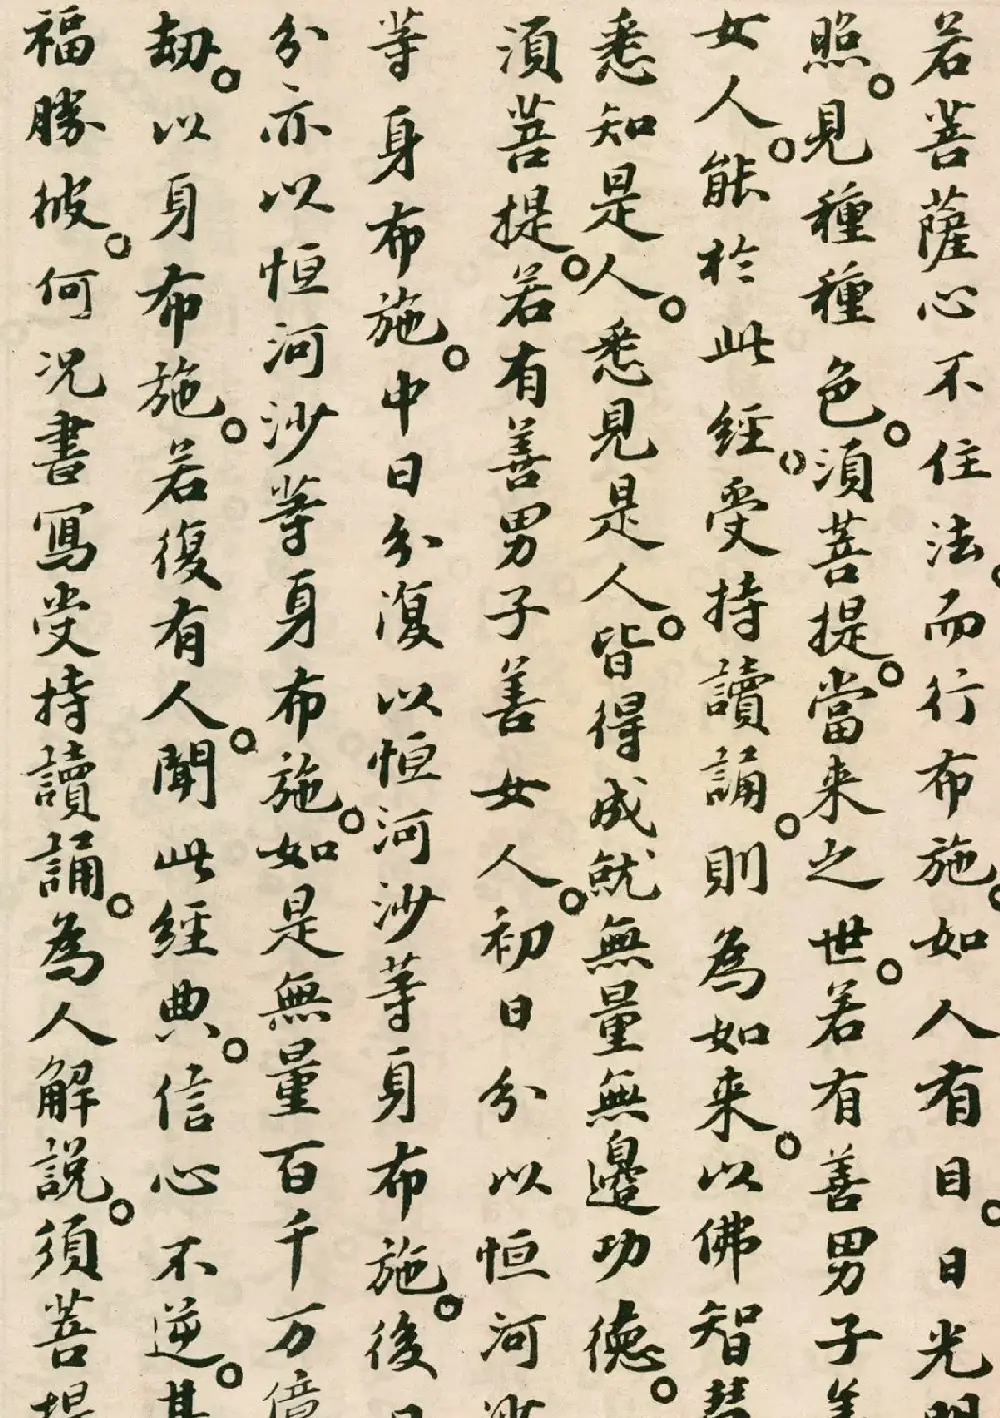 若菩薩心不住法。而行布施。如人有目。日光明
照。見種種色。須菩提。當来之世。若有善男子善
女人。能於此經。受持讀誦。則為如来。以佛智慧
悉知是人。悉見是人。皆得成就無量無邊功德。
須菩提。若有善男子善女人。初日分以恒河沙
等身布施。中日分復以恒河沙等身布施。後日
分亦以恒河沙等身布施。如是無量百千万億
劫。以身布施。若復有人。聞此經典。信心不逆。其
福勝彼。何况書寫受持讀誦。為人解説。須菩提